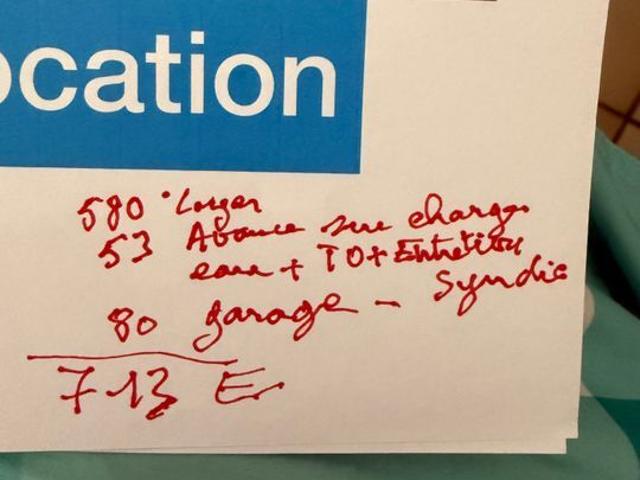 ocation
580 Loyer
53 Avance sur charges
eau + TO + Entretien
Syndic
80 garage -
713 E